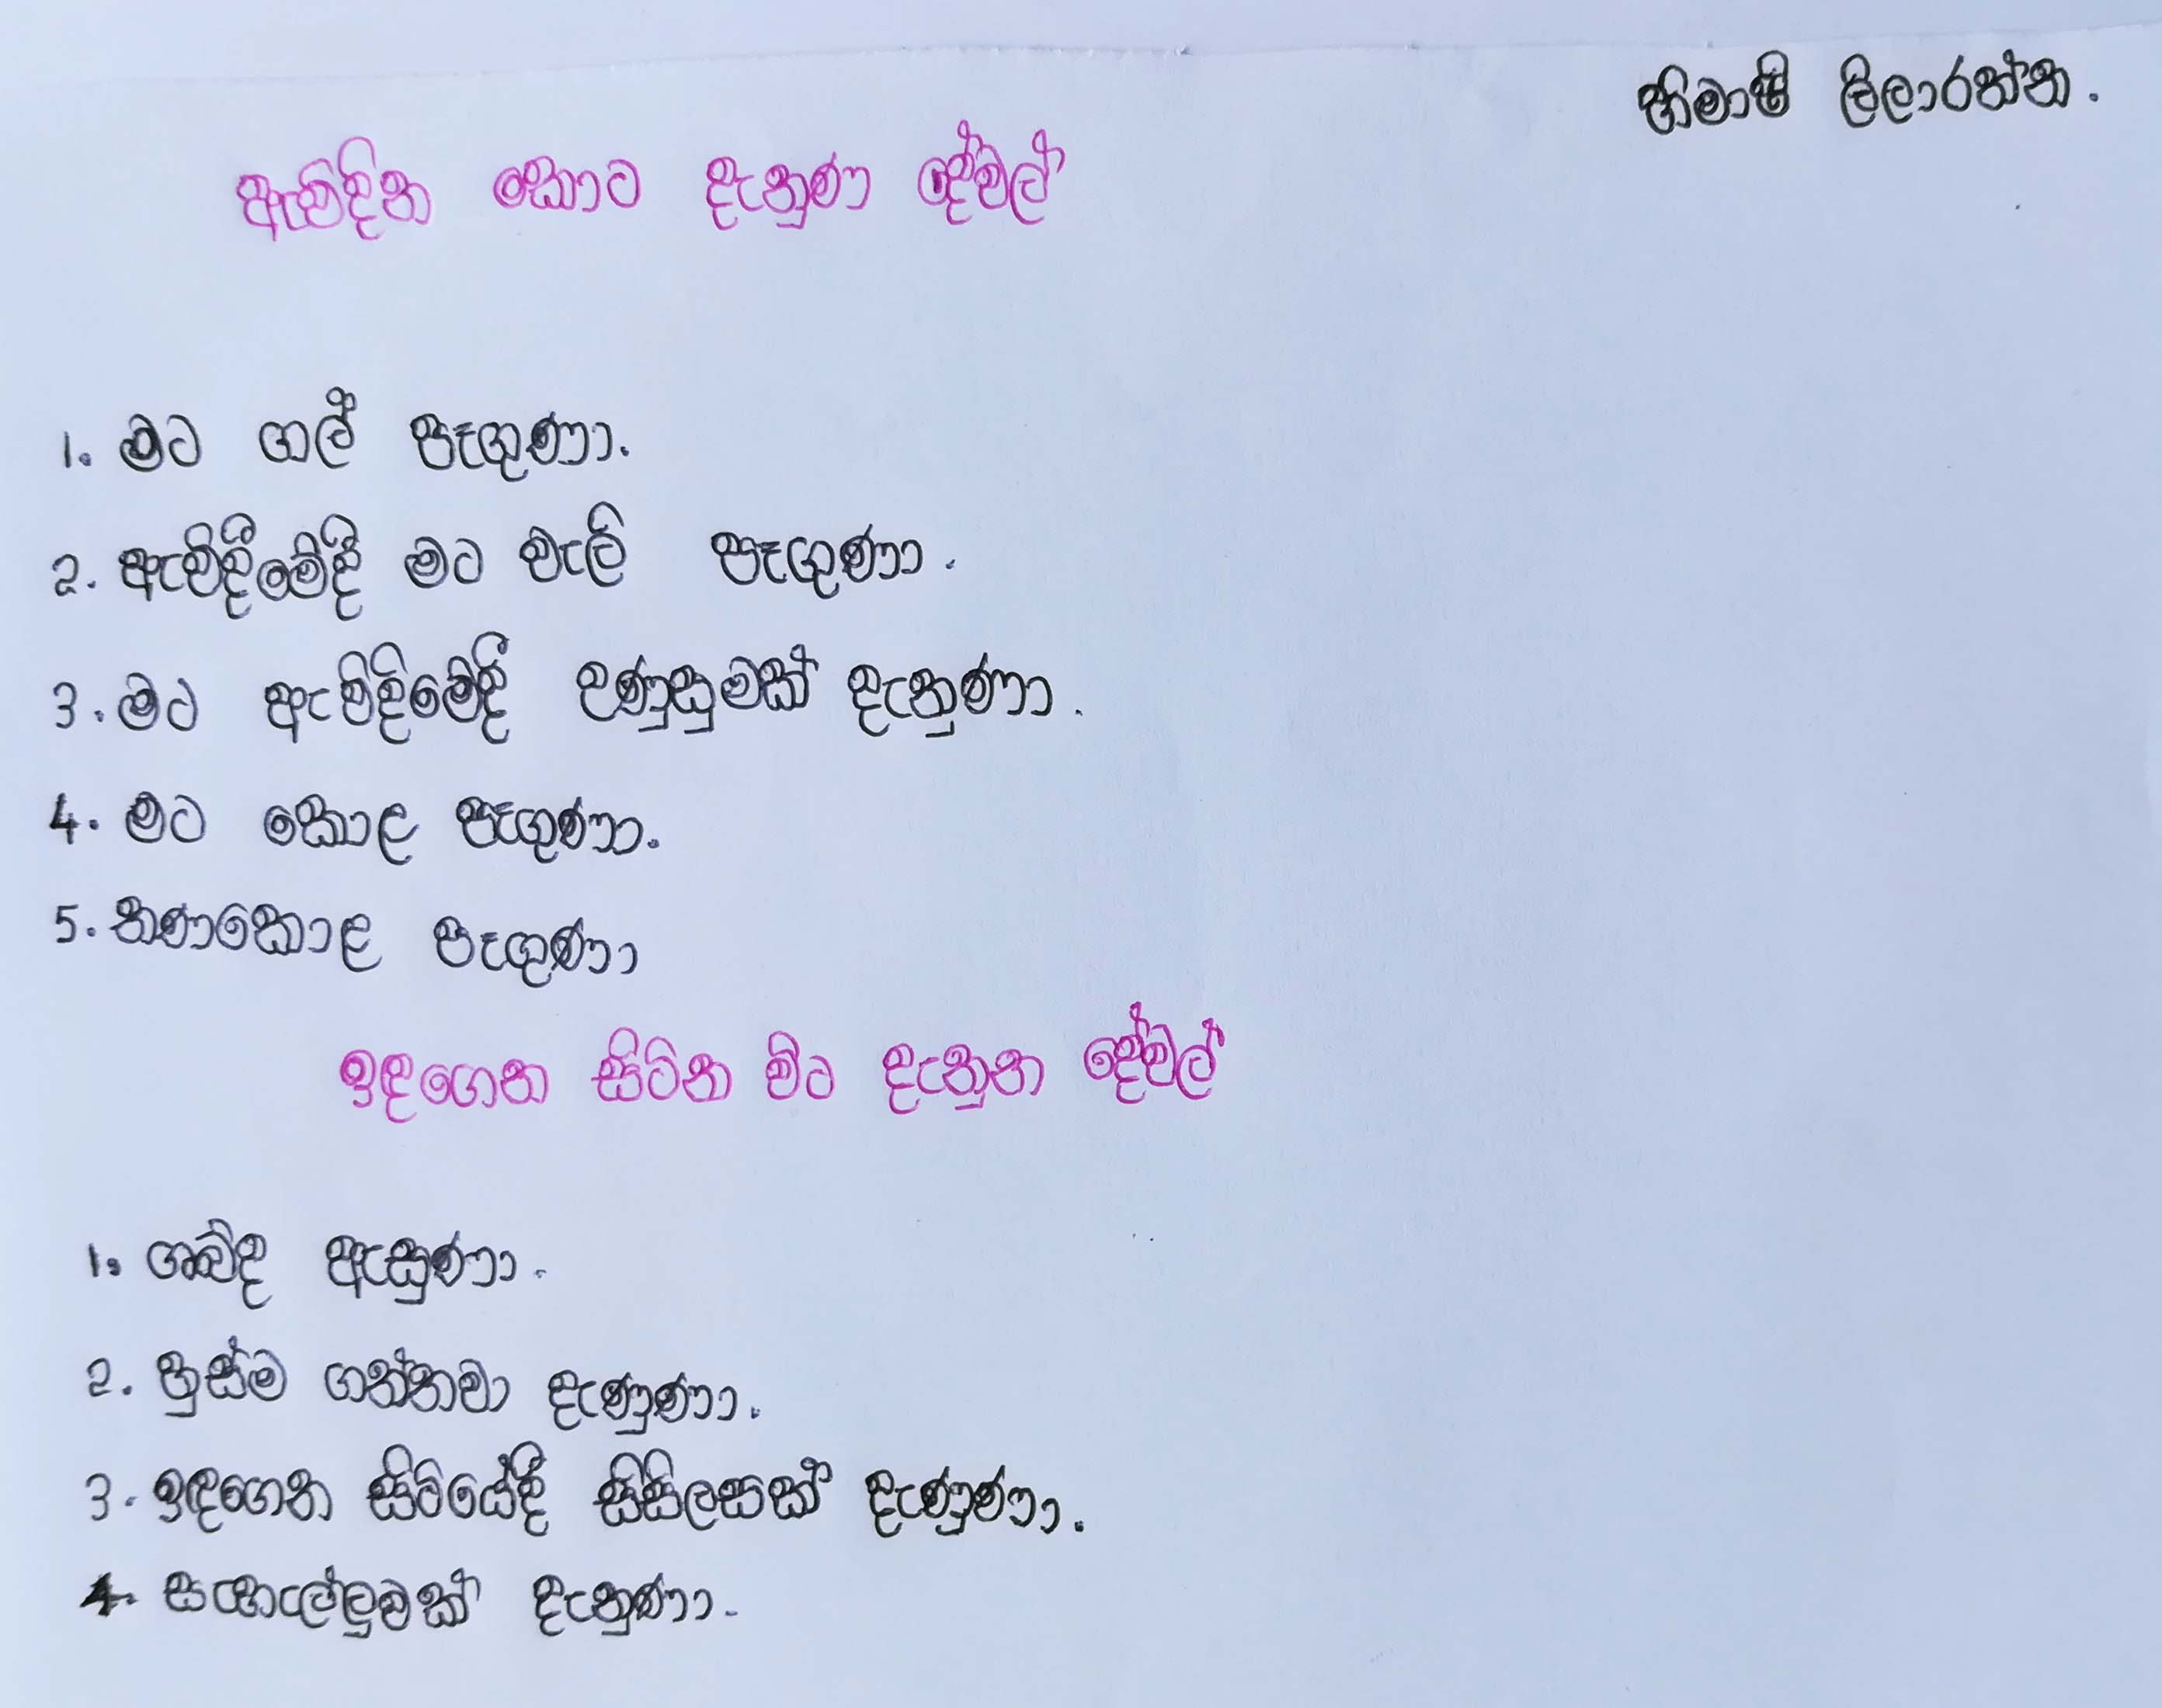 හිමාෂි ලීලාරත්න.
ඇවිදින කොට දැනුණ දේවල්
1. මට ගල් පෑගුණා.
2. ඇවිදීමේදී මට වැලි පෑගුණා.
3. මට ඇවිදිමේදී උණුසුමක් දැනුණා.
4. මට කොළ පෑගුණා.
5. තණකොළ පෑගුණා
ඉඳගෙන සිටින විට දැනුන දේවල්
1. ශබ්ද ඇසුණා.
2. හුස්ම ගන්නවා දැණුණා.
3. ඉඳගෙන සිටියේදී සිසිලසක් දැණුණා.
4. සැහැල්ලුවක් දැනුණා.